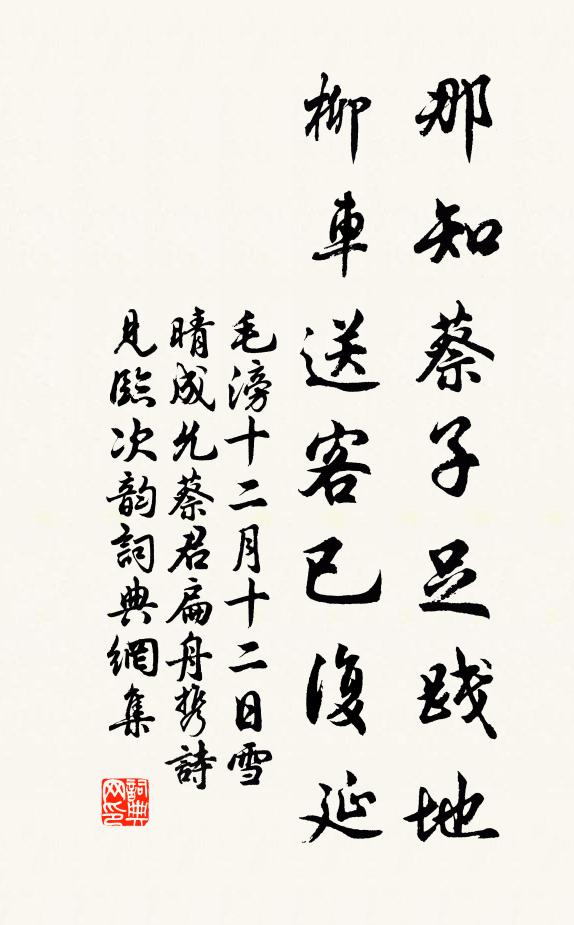 那知蔡子足践地
柳車送客已復延
毛滂十二月十二日雪
晴成允蔡君扁舟携詩
見臨次韵詞典網集
詞典
网印